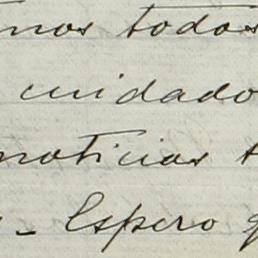 todos
cuidado
noticias
Espero